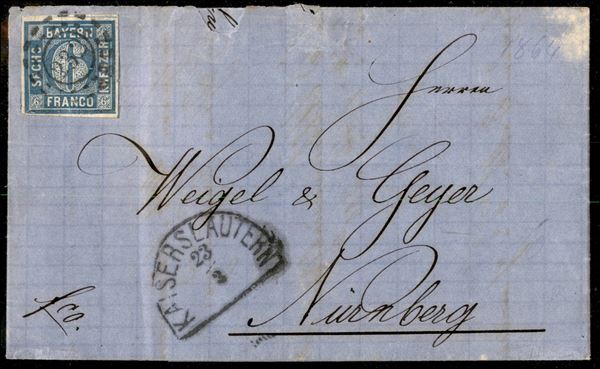 BAYERN
SECHS
6
KREUZER
FRANCO
1864
Herren
Weigel & Geyer
KAISERSLAUTERN
23
fco.
Nürnberg